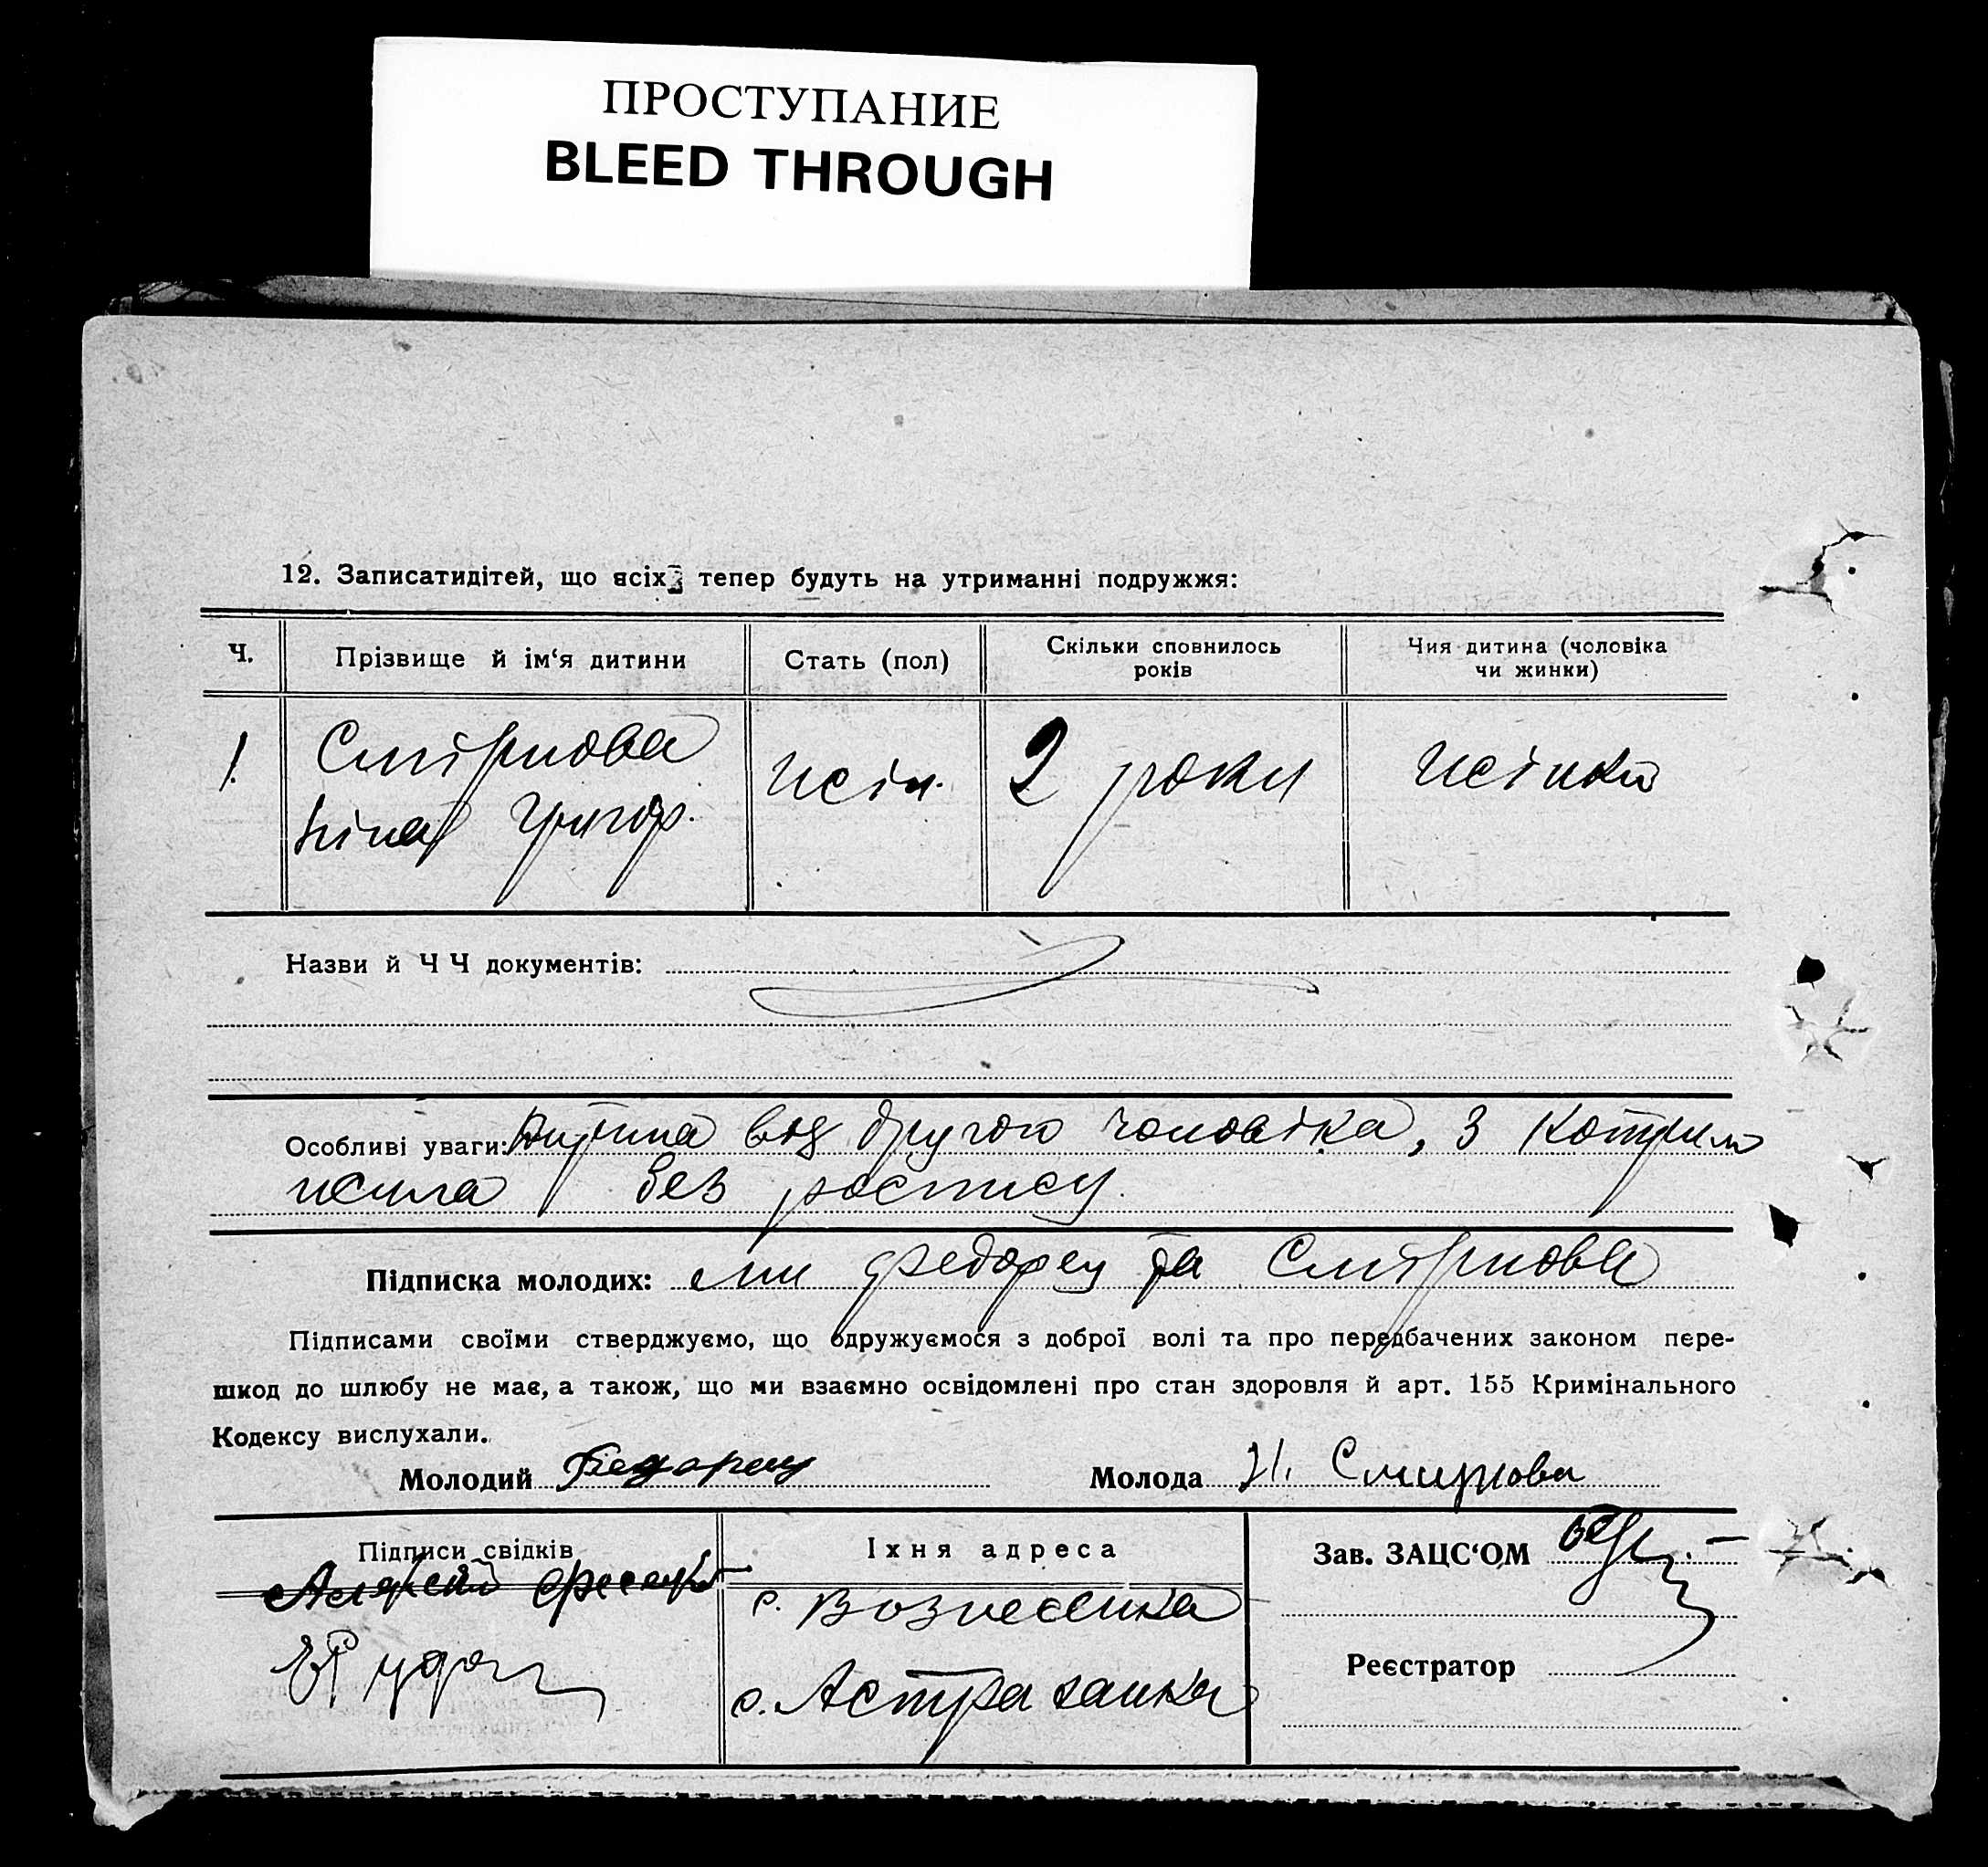 ПРОСТУПАНИЕ
BLEED THROUGH
12. Записатидітей, що всіх тепер будуть на утриманні подружжя:
Ч. Прізвище й ім‘я дитини Стать (пол) Скільки сповнилось років Чия дитина (чоловіка чи жинки)
1. Смірнова жін. 2 роки жінки
Ніна Григор.
Назви й ЧЧ документів:
Особливі уваги: Дитина від другого чоловіка, з котрим
жила без роспису.
Підписка молодих: Ми Федорец та Смірнова
Підписами своїми стверджуємо, що одружуємося з доброї волі та про передбачених законом пере-
шкод до шлюбу не має, а також, що ми взаємно освідомлені про стан здоровля й арт. 155 Кримінального
Кодексу вислухали.
Молодий Федорец Молода Н. Смирнова
Підписи свідків Їхня адреса Зав. ЗАЦС‘ОМ
с. Вознесенка
Реєстратор
с. Астраханка